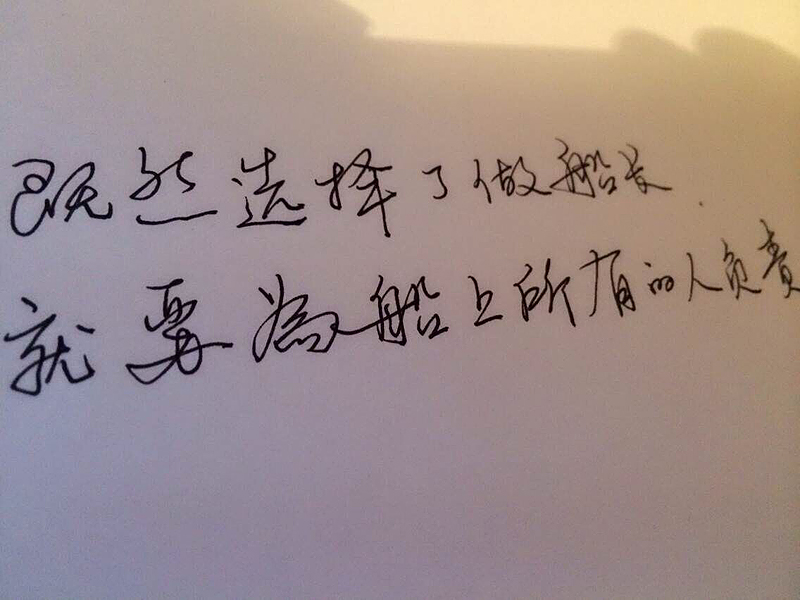 既然选择了做船长.
就要為船上所有的人负责